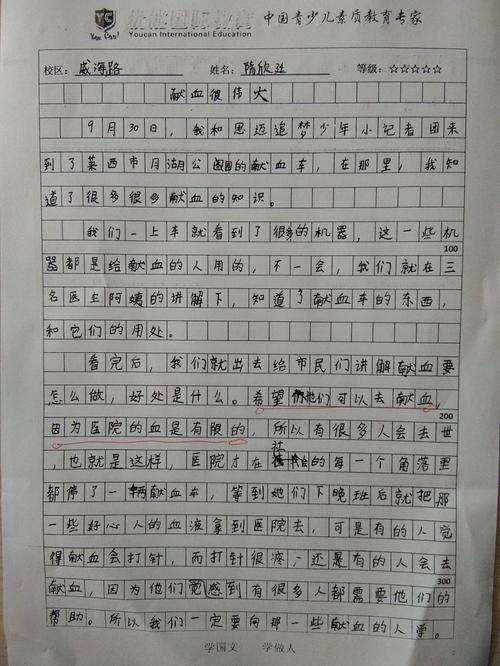 优能国际教育 中国青少儿素质教育专家
You Can! Youcan International Education
校区: 威海路 姓名: 隋欣 等级: ☆☆☆☆☆
献血很伟大
9月30日，我和思迈追梦少年小记者团来
到了莱西市月湖公园的献血车，在那里，我知
道了很多很多献血的知识。
我们一上车就看到了很多的机器，这一些机
100
器都是给献血的人用的，不一会，我们就在三
名医生阿姨的讲解下，知道了献血车的东西，
和它们的用处。
看完后，我们就出去给市民们讲解献血要
怎么做，好处是什么。希望他们可以去献血，
200
因为医院的血是有限的，所以有很多人会去世
社
，也就是这样，医院才在会的每一个角落里
都停了一辆献血车，等到她们下晚班后就把那
一些好心人的血液拿到医院去，可是有的人觉
得献血会打针，而打针很疼，还是有的人会去
300
献血，因为他们觉感到有很多人都需要他们的
帮助。所以我们一定要向那一些献血的人学。
学国文 学做人